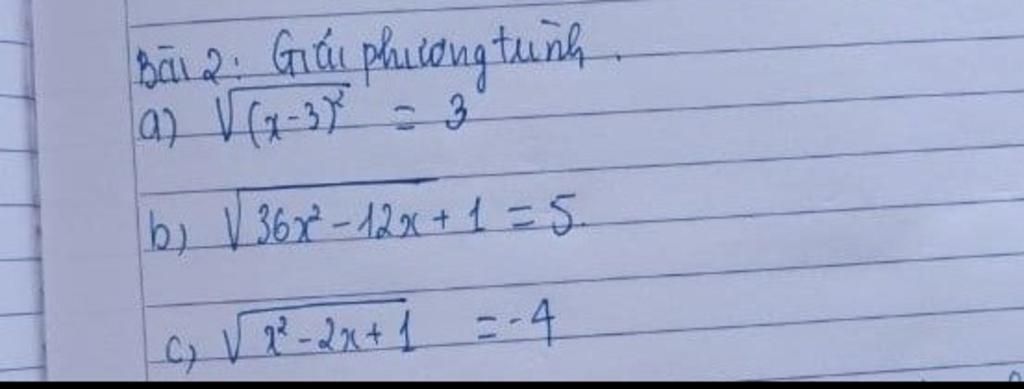 Bài 2: Giải phương trình.
a) √(x-3)² = 3
b) √36x² - 12x + 1 = 5.
c) √x² - 2x + 1 = -4